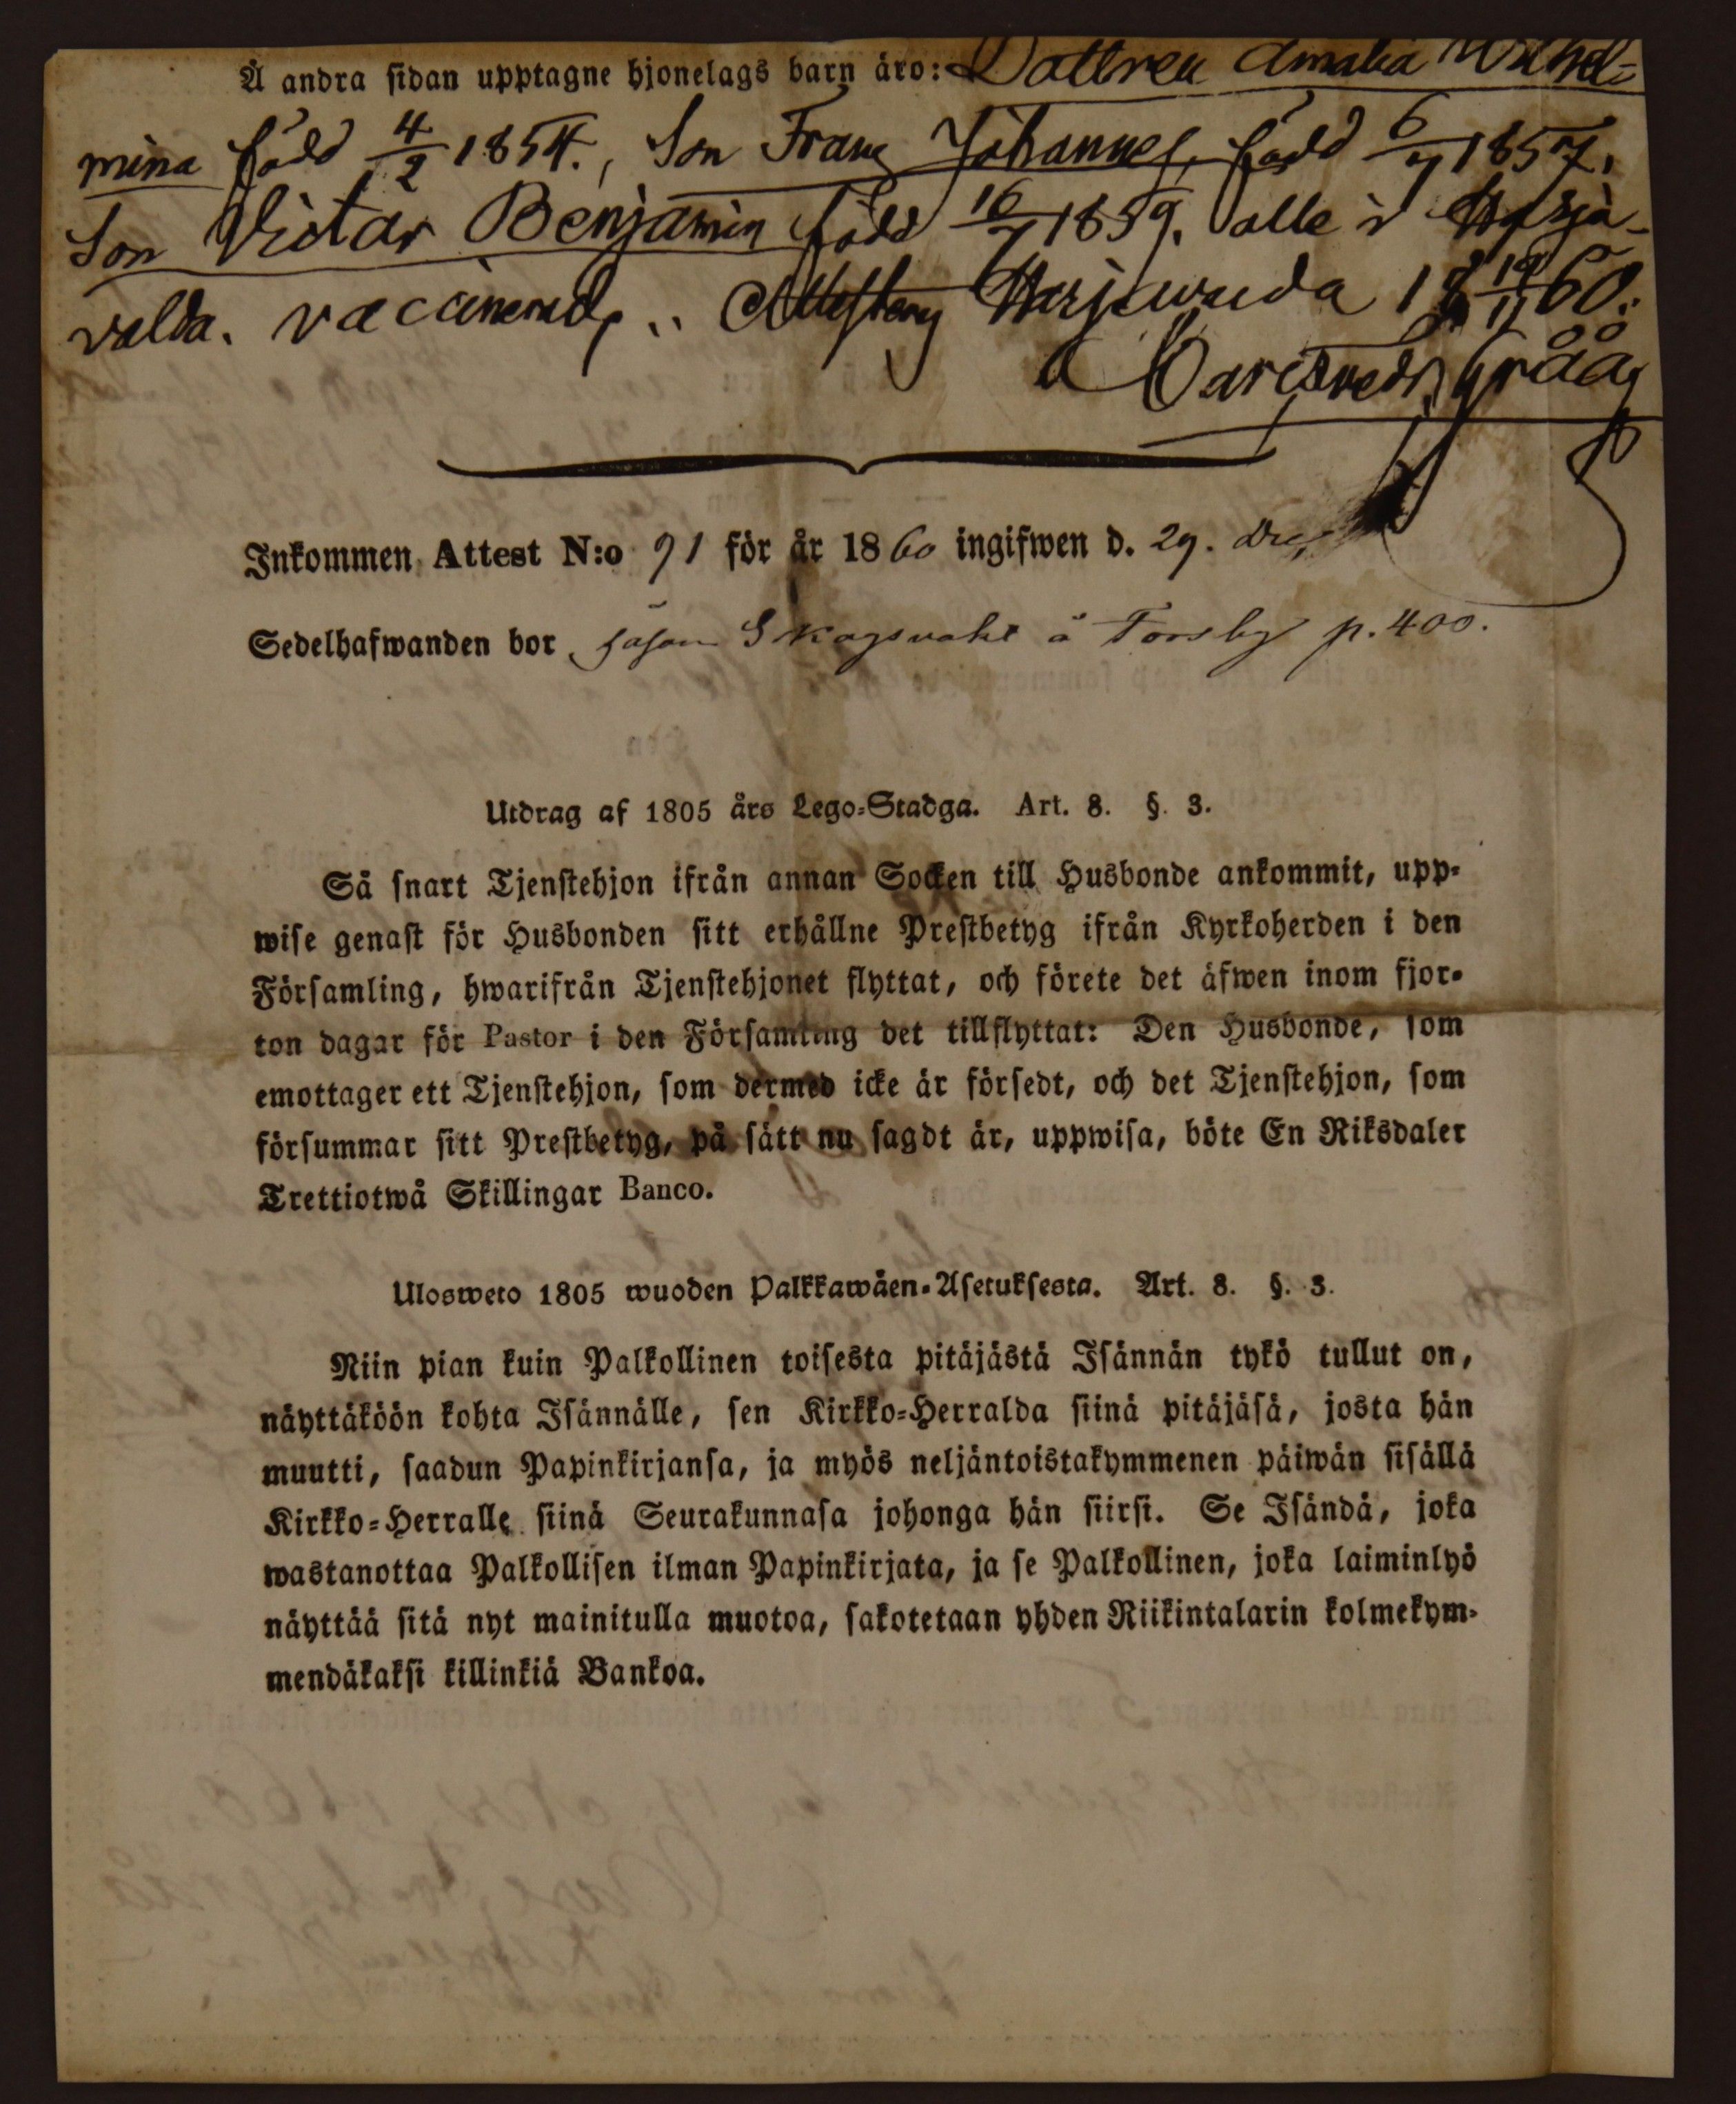 Å andra sidan upptagne hjonelags barn äro: Dottren Amalia Wilhel-
mina född 4/2 1854., Son Frans Johannes, född 6/7 1857,
Son Victor Benjamin född 16/7 1859. alla i Harja-
valda. vaccinerade.. Attesterar Harjawalda 18 19/11 60.
Carl Fredr. Gråå
Inkommen Attest N:o 91 för år 1860 ingifwen d. 29. Dec.
Sedelhafwanden bor såsom Skogsvakt å Torsby p. 400.
Utdrag af 1805 års Lego-Stadga. Art. 8. §. 3.
Så snart Tjenstehjon ifrån annan Socken till Husbonde ankommit, upp-
wise genast för Husbonden sitt erhållne Prestbetyg ifrån Kyrkoherden i den
Församling, hwarifrån Tjenstehjonet flyttat, och förete det äfwen inom fjor-
ton dagar för Pastor i den Församling det tillflyttat: Den Husbonde, som
emottager ett Tjenstehjon, som dermed icke är försedt, och det Tjenstehjon, som
försummar sitt Prestbetyg, på sätt nu sagdt är, uppwisa, böte En Riksdaler
Trettiotwå Skillingar Banco.
Ulosweto 1805 wuoden Palkkawäen-Asetuksesta. Art. 8. §. 3.
Niin pian kuin Palkollinen toisesta pitäjästä Isännän tykö tullut on,
näyttäköön kohta Isännälle, sen Kirkko-Herralda siinä pitäjäsä, josta hän
muutti, saadun Papinkirjansa, ja myös neljäntoistakymmenen päiwän sisällä
Kirkko-Herralle siinä Seurakunnasa johonga hän siirsi. Se Isändä, joka
wastanottaa Palkollisen ilman Papinkirjata, ja se Palkollinen, joka laiminlyö
näyttää sitä nyt mainitulla muotoa, sakotetaan yhden Riikintalarin kolmekym-
mendäkaksi killinkiä Bankoa.